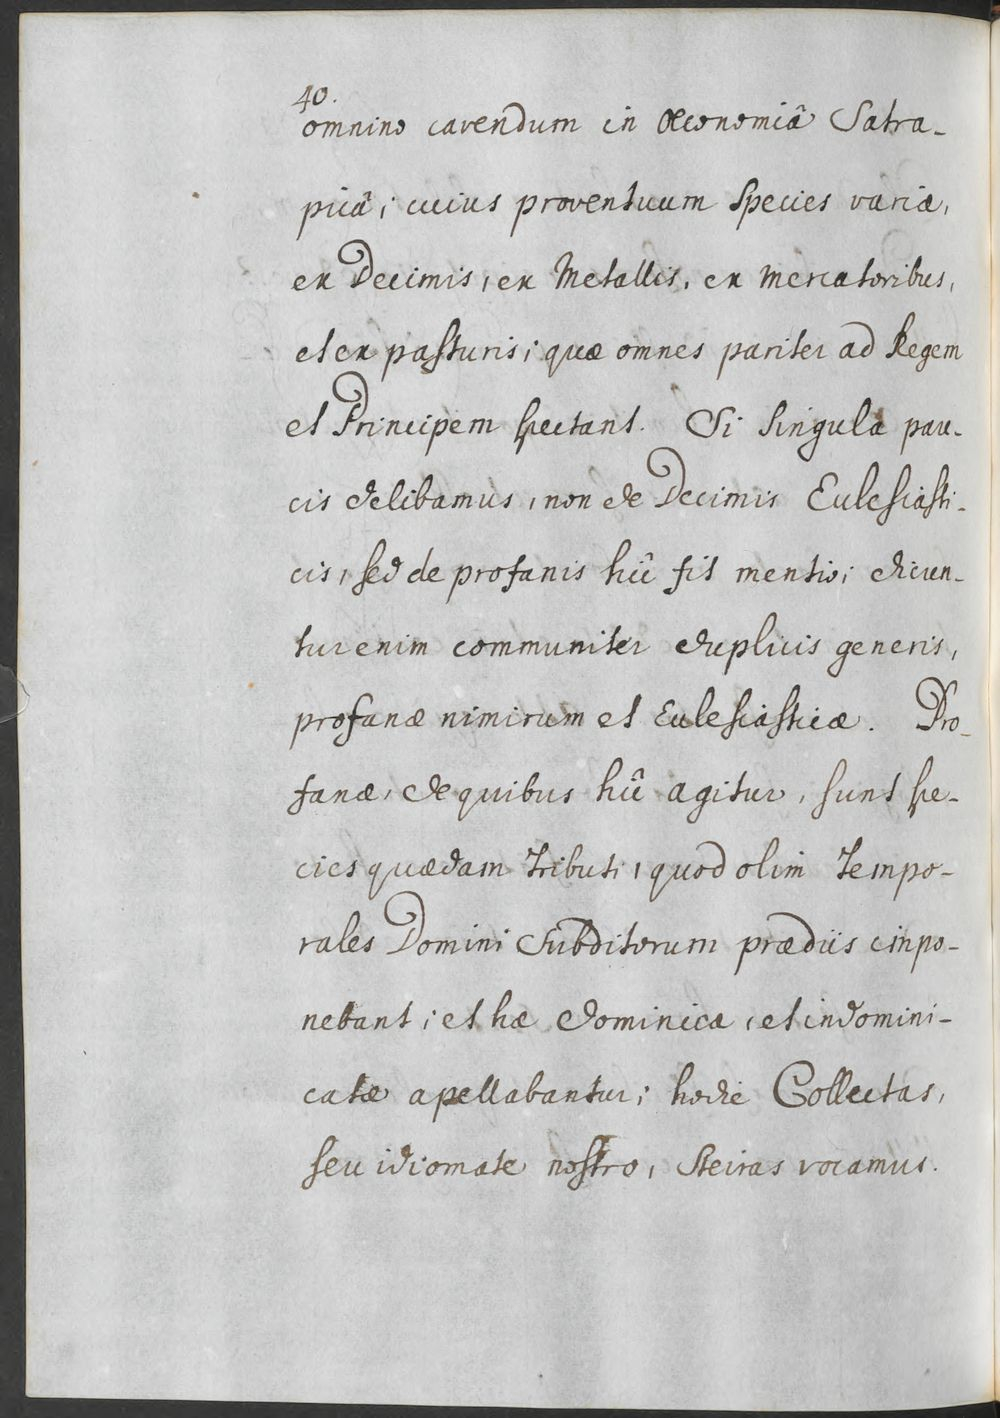 40.
omnino cavendum in Œconomiâ Satra-
picâ; cuius proventuum Species variæ,
ex Decimis, ex Metallis, ex Mercatoribus,
et ex pasturis; quæ omnes pariter ad Regem
et Principem spectant. Si Singula pau-
cis delibamus, non de Decimis Ecclesiasti-
cis, sed de profanis hîc fit mentio; dicun-
tur enim communiter duplicis generis,
profanæ nimirum et Ecclesiasticæ. Pro-
fanæ, de quibus hîc agitur, sunt spe-
cies quædam Tributi, quod olim Tempo-
rales Domini Subditorum prædiis impo-
nebant; et hæ dominicæ, et indomini-
catæ apellabantur; hodie Collectas,
seu idiomate nostro, Steiras vocamus.